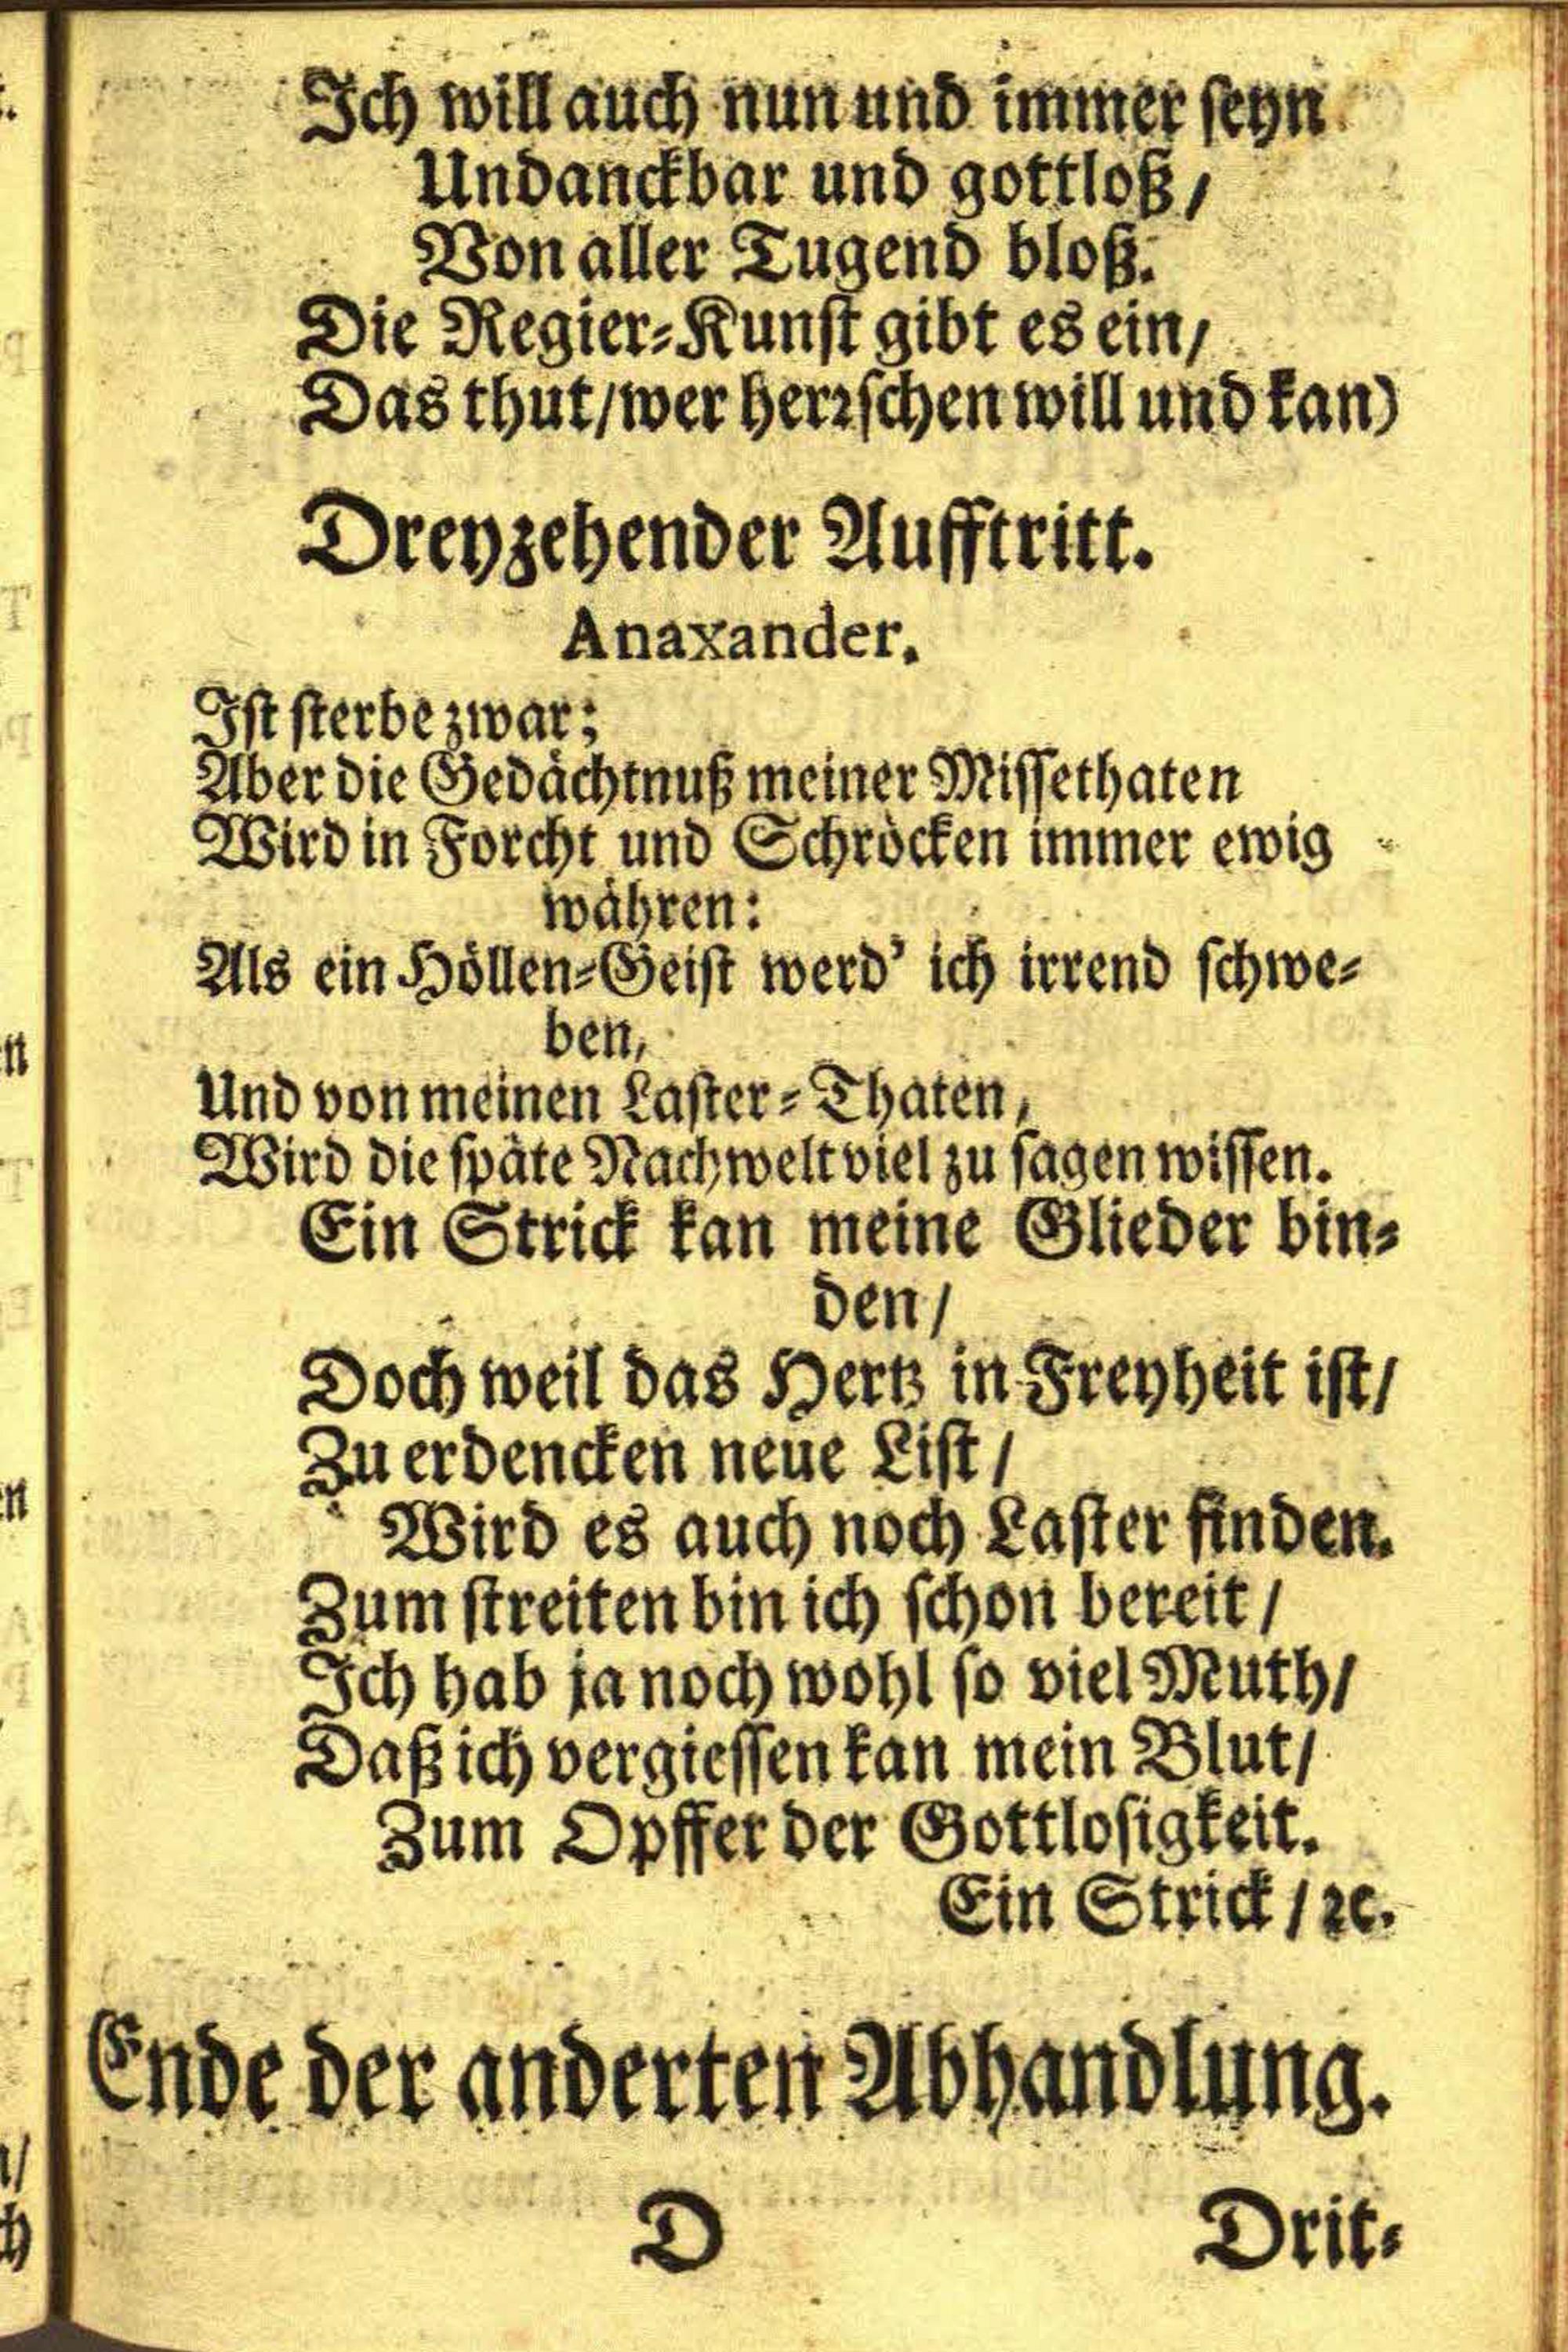 Ich will auch nun und immer ſeyn
Undanckbar und gottloß /
Von aller Tugend bloß.
Die Regier-Kunſt gibt es ein /
Das thut / wer herꝛſchen will und kan)
Dreyzehender Aufftritt.
Anaxander.
Iſt ſterbe zwar;
Aber die Gedächtnuß meiner Miſſethaten
Wird in Forcht und Schröcken immer ewig
währen:
Als ein Höllen-Geiſt werd' ich irrend ſchwe-
ben,
Und von meinen Laſter-Thaten,
Wird die ſpäte Nachwelt viel zu ſagen wiſſen.
Ein Strick kan meine Glieder bin-
den /
Doch weil das Hertz in Freyheit iſt /
Zu erdencken neue Liſt /
Wird es auch noch Laſter finden.
Zum ſtreiten bin ich ſchon bereit /
Ich hab ja noch wohl ſo viel Muth /
Daß ich vergieſſen kan mein Blut /
Zum Opffer der Gottloſigkeit.
Ein Strick / ꝛc.
Ende der anderten Abhandlung.
D
Drit-